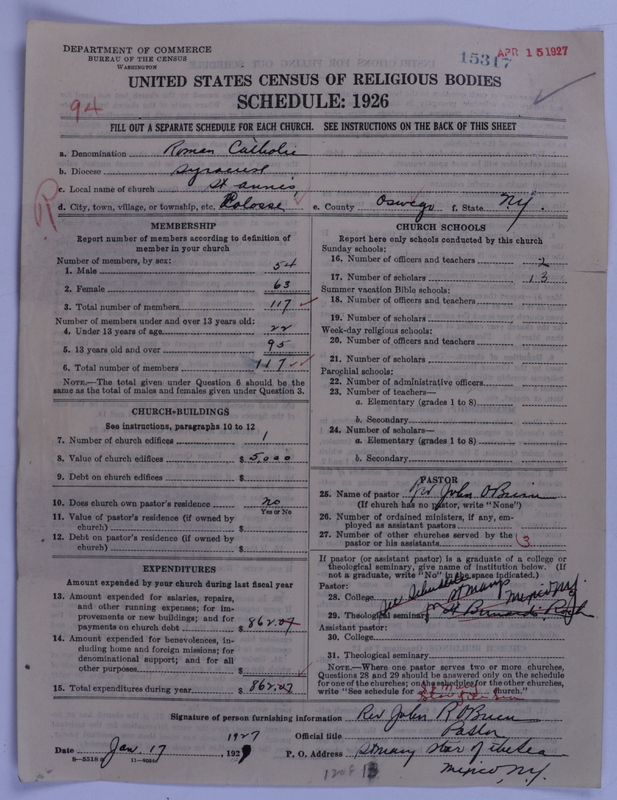 DEPARTMENT OF COMMERCE
BUREAU OF THE CENSUS
WASHINGTON
15317
APR 15 1927
UNITED STATES CENSUS OF RELIGIOUS BODIES
SCHEDULE: 1926
94
FILL OUT A SEPARATE SCHEDULE FOR EACH CHURCH. SEE INSTRUCTIONS ON THE BACK OF THIS SHEET
a. Denomination Roman Catholic
b. Diocese Syracuse
c. Local name of church St Annes
d. City, town, village, or township, etc. Colosse e. County Oswego f. State N.Y.
MEMBERSHIP
Report number of members according to definition of member in your church
Number of members, by sex:
1. Male 54
2. Female 63
3. Total number of members 117
Number of members under and over 13 years old:
4. Under 13 years of age 22
5. 13 years old and over 95
6. Total number of members 117
NOTE.—The total given under Question 6 should be the same as the total of males and females given under Question 3.
CHURCH BUILDINGS
See instructions, paragraphs 10 to 12
7. Number of church edifices 1
8. Value of church edifices $ 5,000
9. Debt on church edifices $
10. Does church own pastor's residence No
Yes or No
11. Value of pastor's residence (if owned by church) $
12. Debt on pastor's residence (if owned by church) $
EXPENDITURES
Amount expended by your church during last fiscal year
13. Amount expended for salaries, repairs, and other running expenses; for improvements or new buildings; and for payments on church debt $ 862.07
14. Amount expended for benevolences, including home and foreign missions; for denominational support; and for all other purposes $
15. Total expenditures during year $ 862.07
CHURCH SCHOOLS
Report here only schools conducted by this church
Sunday schools:
16. Number of officers and teachers 2
17. Number of scholars 13
Summer vacation Bible schools:
18. Number of officers and teachers
19. Number of scholars
Week-day religious schools:
20. Number of officers and teachers
21. Number of scholars
Parochial schools:
22. Number of administrative officers
23. Number of teachers—
a. Elementary (grades 1 to 8)
b. Secondary
24. Number of scholars—
a. Elementary (grades 1 to 8)
b. Secondary
PASTOR
25. Name of pastor Rev John O'Brien
(If church has no pastor, write "None")
26. Number of ordained ministers, if any, employed as assistant pastors
27. Number of other churches served by the pastor or his assistants 3
If pastor (or assistant pastor) is a graduate of a college or theological seminary, give name of institution below. (If not a graduate, write "No" in the space indicated.)
Pastor:
28. College See Schedule
29. Theological seminary for St Marys Mexico N.Y. St Bernards Roch
Assistant pastor:
30. College
31. Theological seminary
NOTE.—Where one pastor serves two or more churches, Questions 28 and 29 should be answered only on the schedule for one of the churches; on the schedules for the other churches, write "See schedule for St Mary Star of the Sea church."
Signature of person furnishing information Rev John R O'Brien
Official title Pastor
Date Jan. 17 1927 P. O. Address St Mary Star of the Sea
Mexico, N.Y.
8—5518